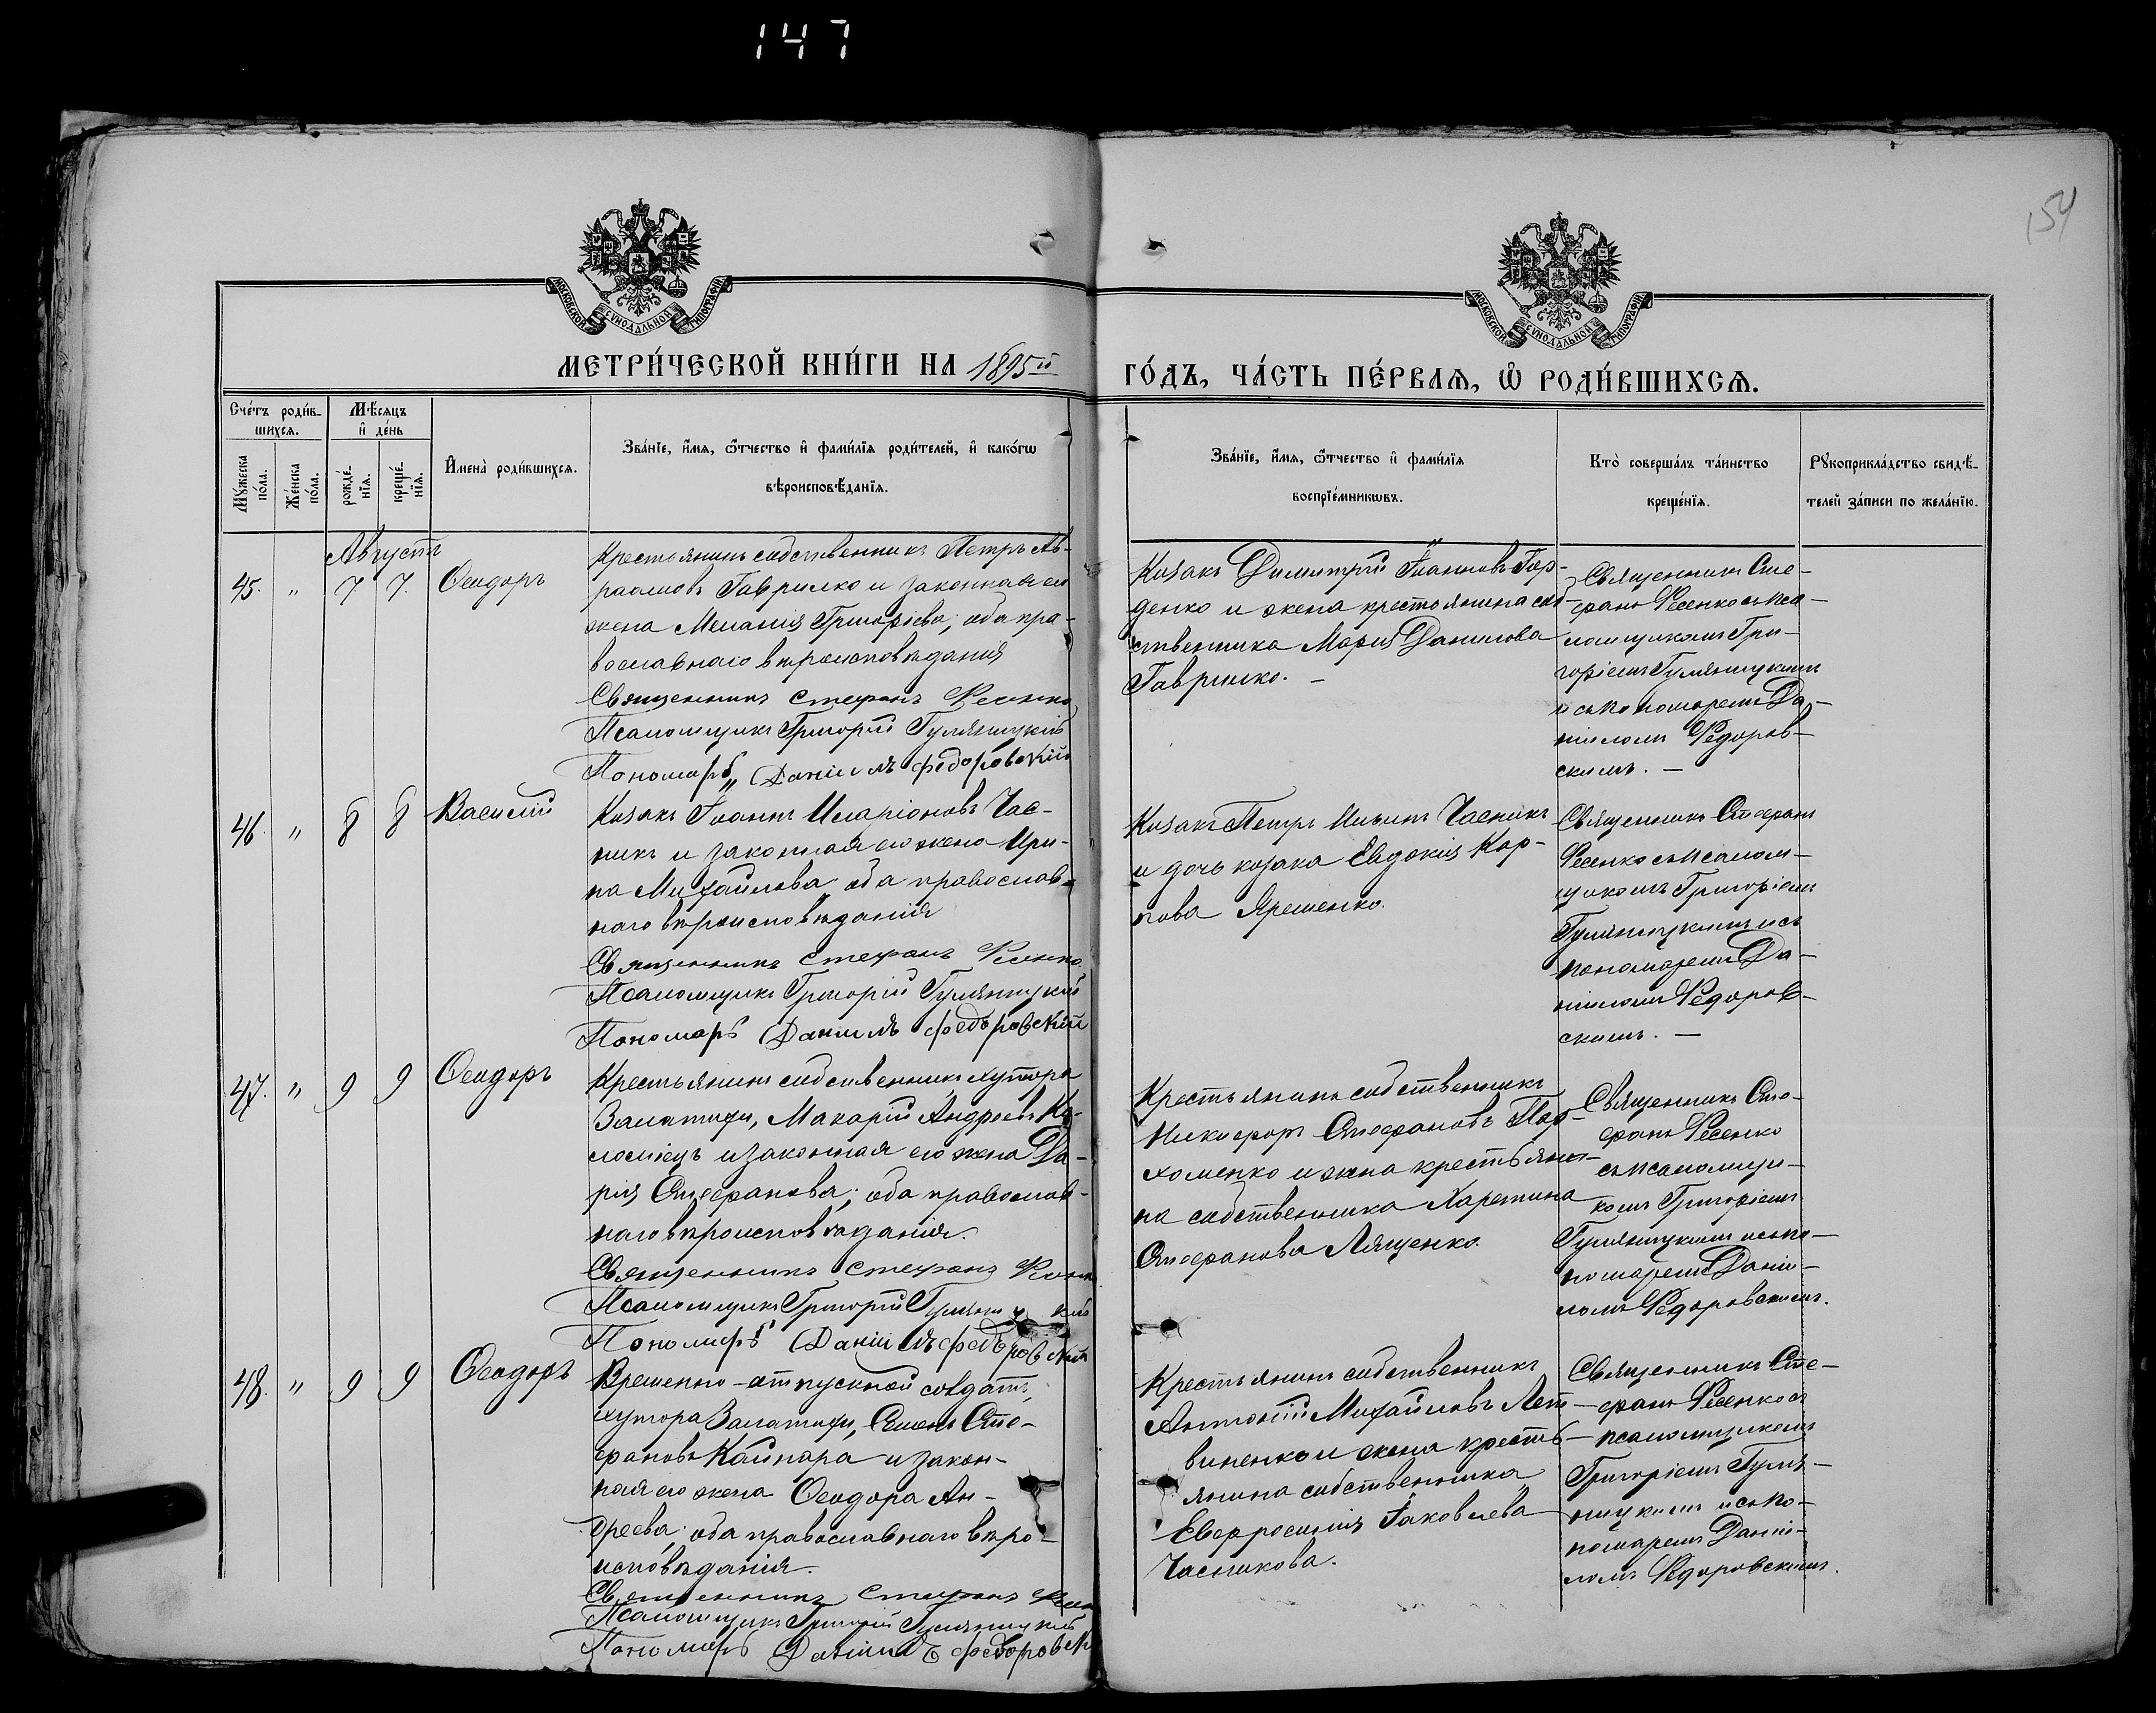 147
154
МОСКОВСКОЙ СѴНОДАЛЬНОЙ ТИПОГРАФІИ
МОСКОВСКОЙ СѴНОДАЛЬНОЙ ТИПОГРАФІИ
МЕТРИ́ЧЕСКОЙ КНИ́ГИ НА 1895й ГО́ДЪ, ЧА́СТЬ ПЕ́РВАѦ, Ѡ҆ РОДИ́ВШИХСѦ.
Сче́тъ роди́в-
шихсѧ.
Мꙋ́жеска
по́ла.
Же́нска
по́ла.
Мѣ́сѧцъ
и҆ де́нь
рожде́-
нїѧ.
креще́-
нїѧ.
И҆мена̀ роди́вшихсѧ.
Зва́нїе, и҆́мѧ, ѻ҆́тчество и҆ фами́лїѧ роди́телей, и҆ како́гѡ
вѣроисповѣ́данїѧ.
Зва́нїе, и҆́мѧ, ѻ҆́тчество и҆ фами́лїѧ
воспрїе́мникѡвъ.
Кто̀ соверша́лъ та́инство
креще́нїѧ.
Рꙋкоприкла́дство свидѣ́-
телей за́писи по жела́нїю.
Августъ
45. " 7 7. Ѳеодоръ
Крестьянинъ собственникъ Петръ Ав-
раамовъ Гаврилко и законная его
жена Меланія Григоріева; оба пра-
вославнаго вѣроисповѣданія
Священникъ Стефанъ Фесенко
Псаломщикъ Григорій Гуляницкій
Пономарь Даніилъ Федоровскій
Козакъ Димитрій Іоанновъ Гор-
денко и жена крестьянина соб-
ственника Марія Данилова
Гаврилко. –
Священникъ Сте-
фанъ Фесенко съ пса-
ломщикомъ Гри-
горіемъ Гуляницкимъ
и съ пономаремъ Да-
ніиломъ Федоров-
скимъ. –
46. " 8 8 Василій
Козакъ Іоаннъ Иларіоновъ Час-
никъ и законная его жена Ири-
на Михайлова оба православ-
наго вѣроисповѣданія
Священникъ Стефанъ Фесенко
Псаломщикъ Григорій Гуляницкій
Пономарь Даніилъ Федоровскій
Козакъ Петръ Ильинъ Часникъ
и дочь козака Евдокія Кар-
пова Яременко.
Священникъ Стефанъ
Фесенко съ псалом-
щикомъ Григоріемъ
Гуляницкимъ и съ
пономаремъ Да-
ніиломъ Федоров-
скимъ. –
47. " 9 9 Ѳеодоръ
Крестьянинъ собственникъ хутора
Макарій Андреевъ Ко-
ломіецъ и законная его жена Да-
рія Стефанова; оба православ-
наго вѣроисповѣданія.
Священникъ Стефанъ Фесенко
Псаломщикъ Григорій Гуляницкій
Пономарь Даніилъ Федоровскій
Крестьянинъ собственникъ
Никифоръ Стефановъ Пар-
хоменко и жена крестьяни-
на собственника Харитина
Стефанова Лященко.
Священникъ Сте-
фанъ Фесенко
съ псаломщи-
комъ Григоріемъ
Гуляницкимъ и съ по-
номаремъ Даніи-
ломъ Федоровскимъ.
48. " 9 9 Ѳеодоръ
Временно-отпускной солдатъ,
хутора Семенъ Сте-
фановъ Кайпара и закон-
ная его жена Ѳеодора Ан-
дреева; оба православнаго вѣро-
исповѣданія.
Священникъ Стефанъ Фесенко
Псаломщикъ Григорій Гуляницкій
Пономарь Даніилъ Федоровск
Крестьянинъ собственникъ
Антоній Михайловъ Лит-
виненко и жена кресть-
янина собственника
Евфросинія Іаковлева
Часникова.
Священникъ Сте-
фанъ Фесенко съ
псаломщикомъ
Григоріемъ Гуля-
ницкимъ и съ по-
номаремъ Даніи-
ломъ Федоровскимъ.